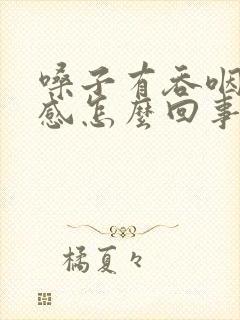 嗓子有吞咽
感怎麼回事
橘夏々